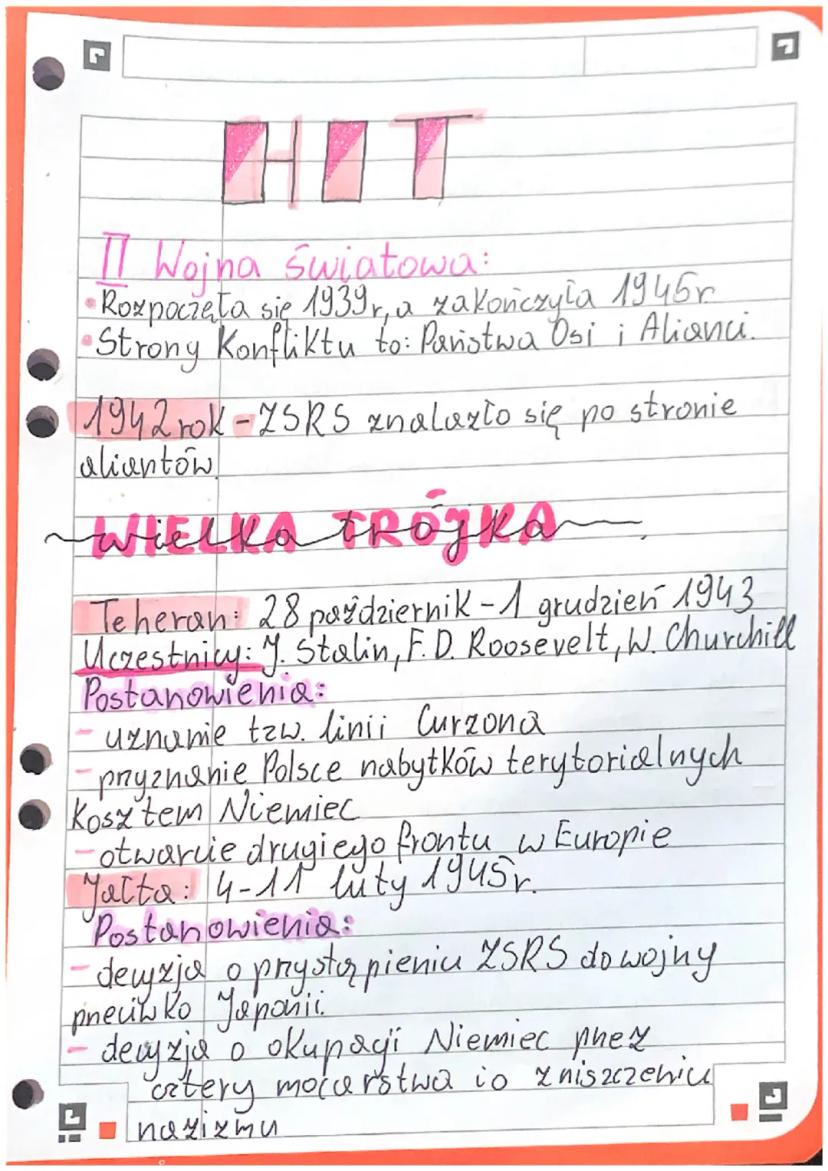 HIT
II Wojna światowa:
• Rozpoczęła się 1939r, a zakończyła 1945r
• Strony Konfliktu to: Państwa Osi i Alianci.
1942 rok - ZSRS znalazło się po stronie
aliantów.
WIELKA TRÓJKA
wielka trójka
Teheran: 28 październik - 1 grudzień 1943
Uczestnicy: J. Stalin, F. D. Roosevelt, W. Churchill
Postanowienia:
- uznanie tzw. linii Curzona
- przyznanie Polsce nabytków terytorialnych
Kosztem Niemiec
- otwarcie drugiego frontu w Europie
Jałta: 4-11 luty 1945r.
Postanowienia:
- decyzja o przystąpieniu ZSRS do wojny
przeciwko Japonii.
- decyzja o okupacji Niemiec przez
cztery mocarstwa i o zniszczeniu
nazizmu